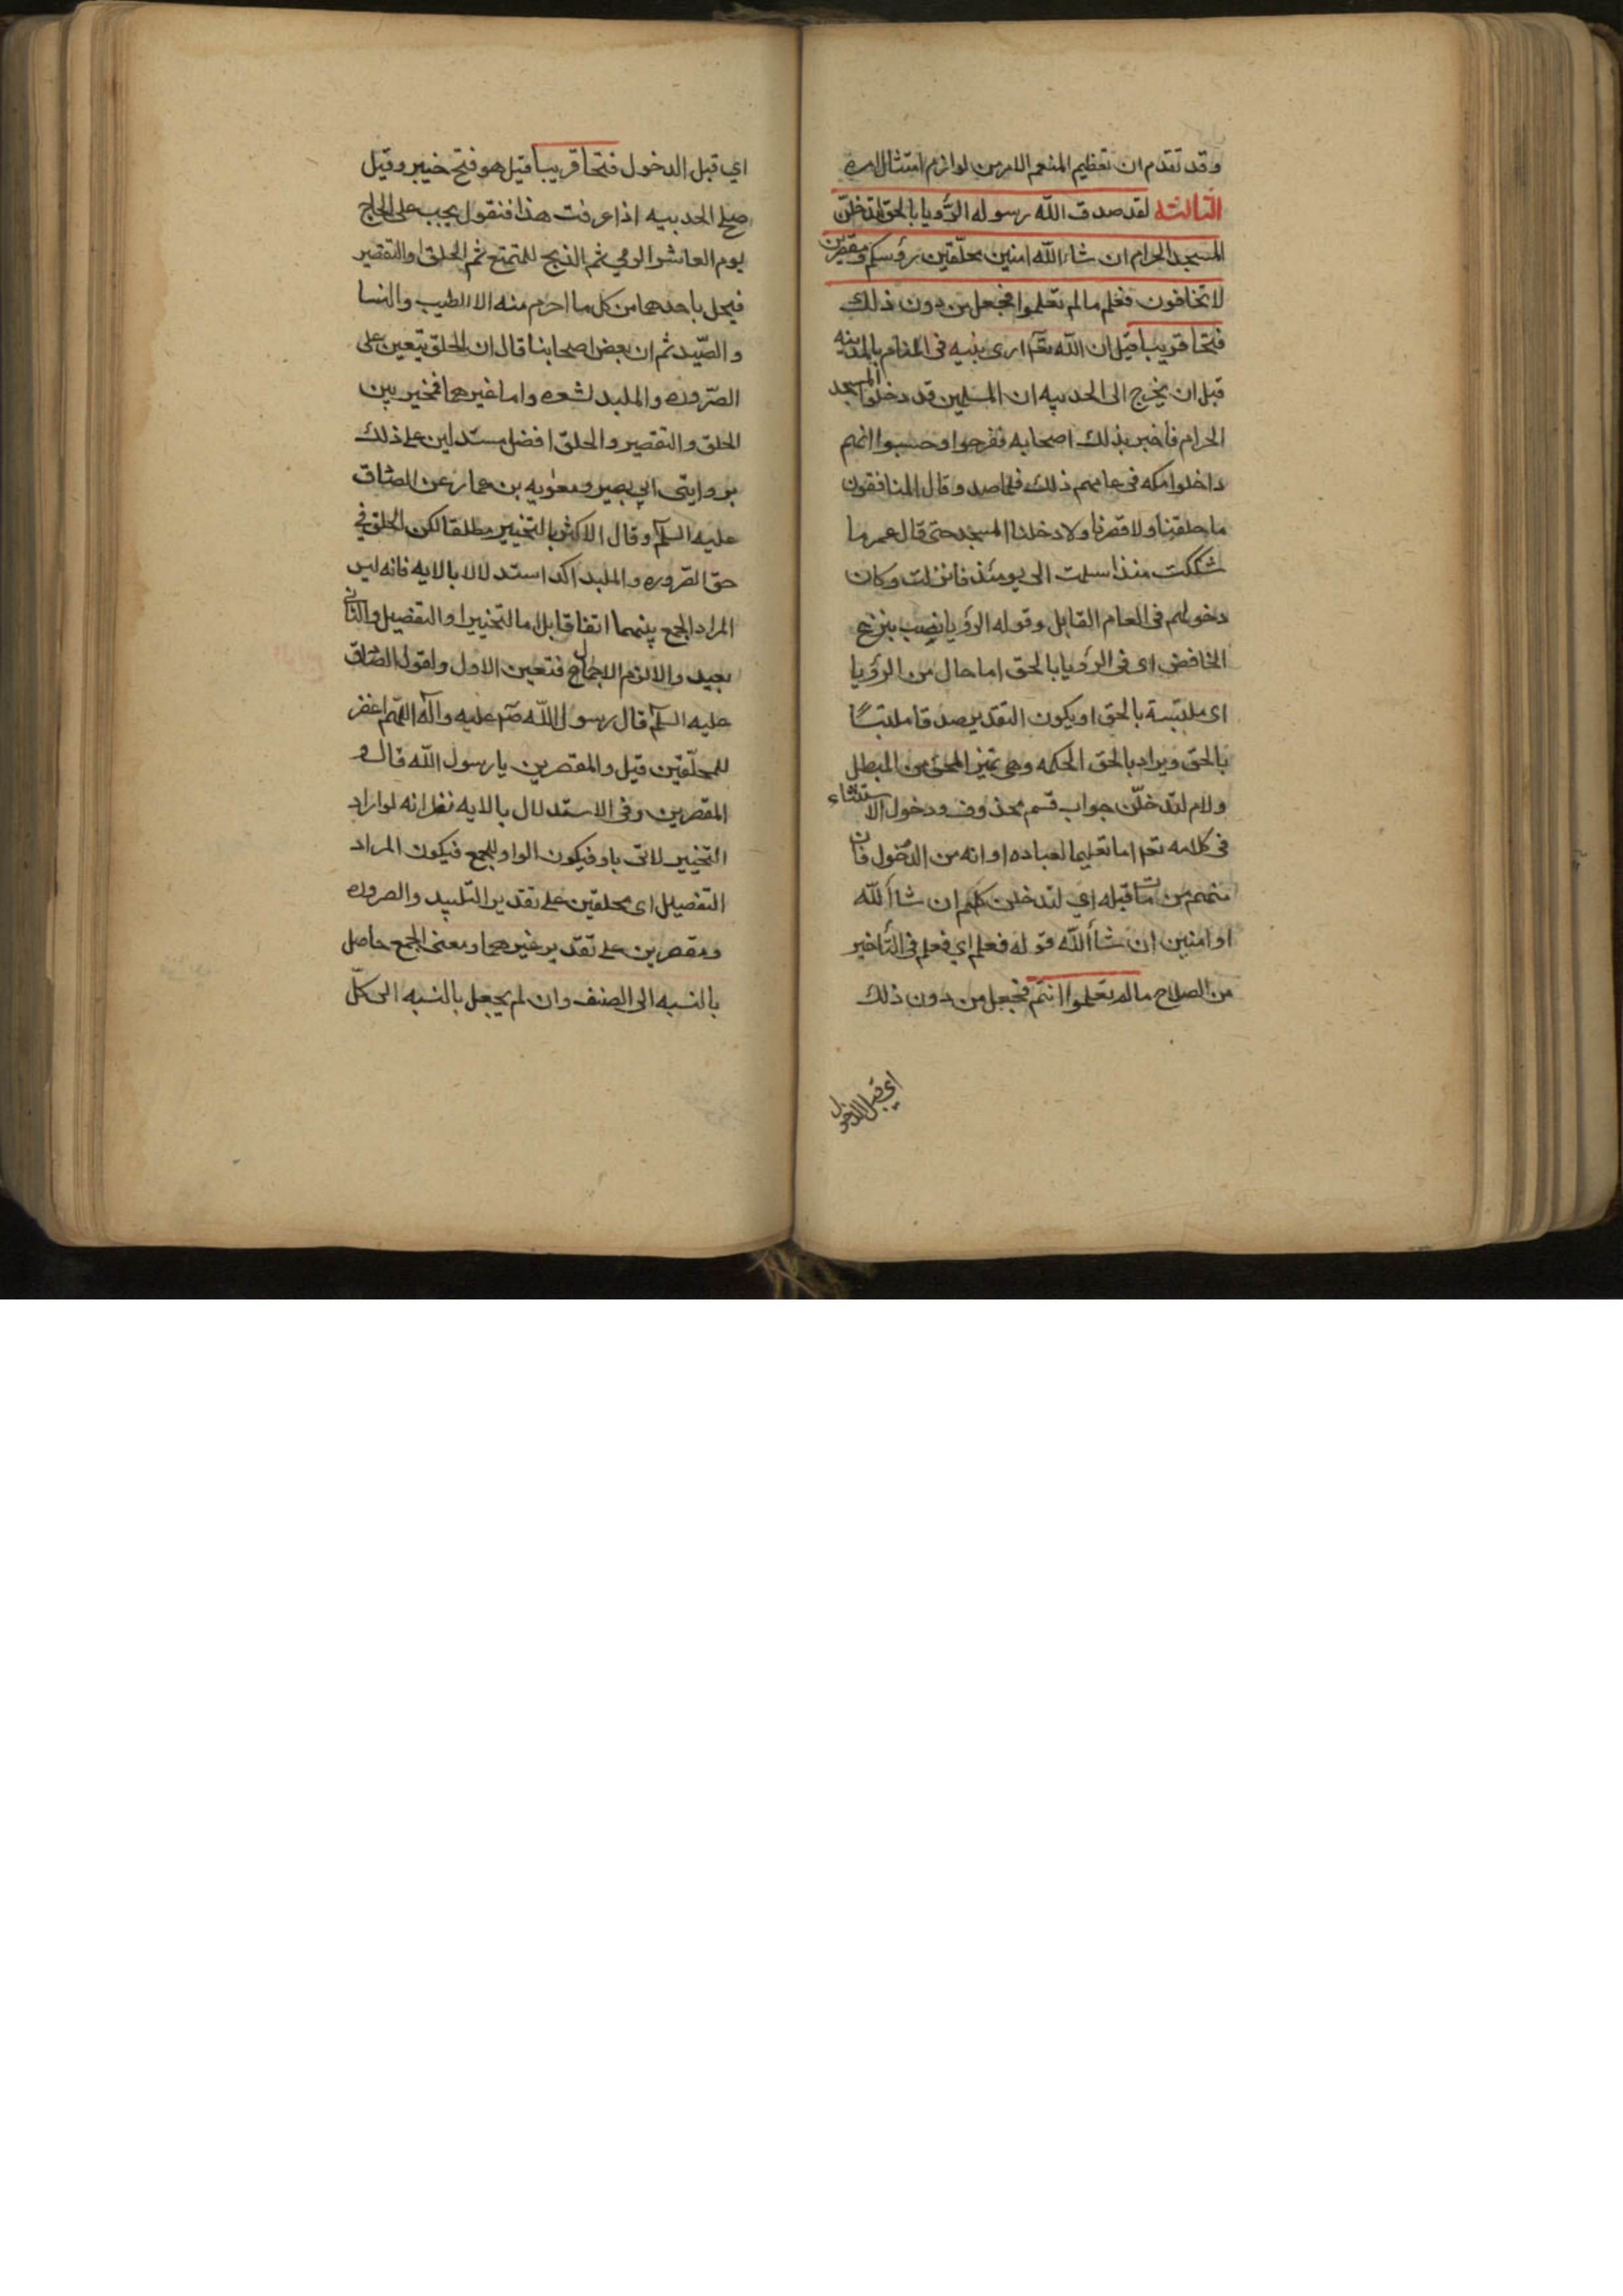 وقد تقدم ان تعظيم المنعم الامر من لوازم امتثال امره
الثالثه لقد صدق الله رسوله الرؤيا بالحق لتدخلنّ
المسجد الحرام ان شاء الله امنين محلّقين رؤسكم ومقصرين
لا تخافون فعلم ما لم تعلموا فجعل من دون ذلك
فتحا قريبا قيل ان الله تعالى ارى نبيه في المنام بالمدينه
قبل ان يخرج الى الحديبيه ان المسلمين قد دخلوا المسجد
الحرام فاخبر بذلك اصحابه ففرحوا وحسبوا انهم
داخلوا مكه في عامهم ذلك فلما صد وقال المنافقون
ما حلقنا ولا قصرنا ولا دخلنا المسجد حتى قال عمر ما
شككت منذ اسلمت الى يومئذ فانزلت وكان
دخولهم في العام القابل وقوله الرؤيا نصب بنزع
الخافض اى في الرؤيا بالحق اما حال من الرؤيا
اى ملتبسة بالحق او يكون التقدير صدقا ملتبسًا
بالحق ويراد بالحق الحكمه وهي تميز المحق من المبطل
ولام لتدخلّن جواب قسم محذوف ودخول الاستثناء
في كلامه تعالى اما تعليما لعباده او انه من الدخول فان
منهم من مات قبله اي لتدخلن كلكم ان شاء الله
او امنين ان شاء الله قوله فعلم اي فعلم في التاخير
من الصلاح ما لم تعلموا انتم فجعل من دون ذلك
اي قبل الدخول
اي قبل الدخول فتحا قريبا قيل هو فتح خيبر وقيل
صلح الحديبيه اذا عرفت هذا فنقول يجب على الحاج
يوم العاشر الرمي ثم الذبح للمتمتع ثم الحلق او التقصير
فيحل باحدهما من كل ما احرم منه الا الطيب والنسا
والصّيد ثم ان بعض اصحابنا قال ان الحلق يتعين على
الصّروره والملبد لشعره واما غيرهما فمخير بين
الحلق والتقصير والحلق افضل مستدلين على ذلك
بروايتى ابي بصير ومعويه بن عمار عن الصادق
عليه السلم وقال الاكثر بالتخيير مطلقا لكن الحلق في
حق الصّروره والملبد اكد استدلالا بالايه فانه ليس
المراد الجمع بينهما اتفاقا بل اما التخيير او التفصيل والثاني
بعيد والا لزم الاجمال فتعين الاول ولقول الصادق
عليه السلم قال رسول الله صم عليه وآله اللهم اغفر
للمحلّقين قيل والمقصرين يا رسول الله قال و
المقصرين وفي الاستدلال بالايه نظر انه لو اراد
التخيير لاتى باو فيكون الواو للجمع فيكون المراد
التفصيل اى محلقين على تقدير التلبيد والصروره
ومقصرين على تقدير غيرهما ومعنى الجمع حاصل
بالنسبه الى الصنف وان لم يجعل بالنسبه الى كلّ